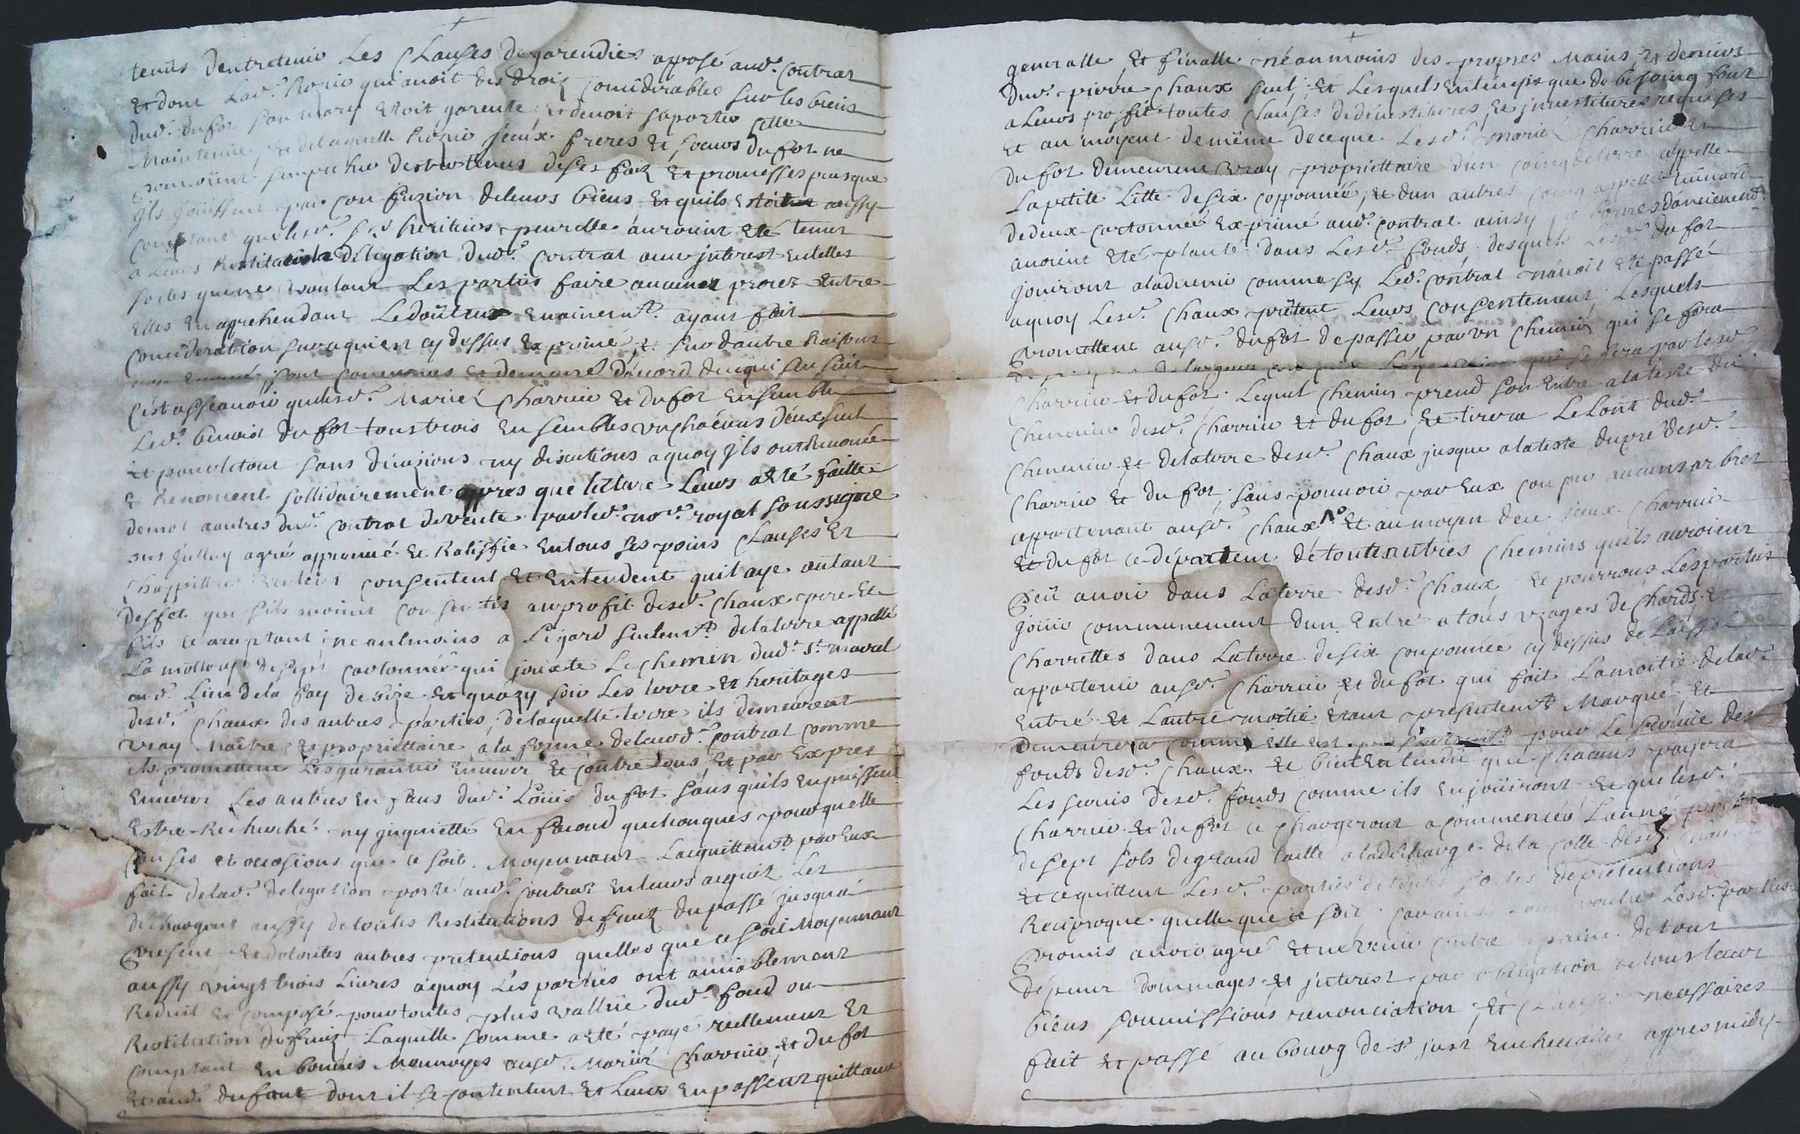 tenus dentretenir Les Clauses de garendies aposé aud. Contrat
Et dont Lad. Roric qui auoit des droiz considerables sur les biens
dud. dufot son mary Estoit garente et deuoit saporter Elle
Maintenir, Et de laquelle Roric Jeux freres Et soeurs Dufot ne
pouuoient Empecher destre tenus de ses faiz Et promesses puisque
Ils jouissent par confusion de leurs biens Et quils Estoient aussy
Comptant que les. heritiers pour elle auroient Esté tenus
a Leurs Restitaion delegation dud. Contrat auec jnterest Entelles
sortes que ne voulant Les parties faire aucunes procez Entre
Elles En aprehendant Le douteux Euainem.t ayant fait
Consideration sur ce qui est cy dessus Exprimé Et sur dautre Raisons
sont conuenues Et demeurés daccord de ce qui sensuit
C'est asscauoir que les. Mariéz Charrier Et dufot Ensemble
Led. benoist dufot tous trois Ensembles Un chacuns deux seul
Et pour le tout sans diuisions ny discutions a quoy Ils ont Renoncé
Et Renoncent sollidairement apres que lecture Leurs a Eté faitte
demot aautres dud. Contrat de vente par led. no.re royal soussigné
ont agréé approuué Et Ratiffie En tous ses poins Clauses Et
Chappittres consentent Et Entendent quil aye autant
Deffet que sils auoient consentis au profit desd. Chaux pere Et
fils Ce acceptant neantmoins a Legard seulem.t de la terre appellé
La de sept cartonnée qui jouxte Le chemin dud. S.t marcel
aud. Lieu de la fay de bize Et quazy soir Les terre Et heritages
desd. Chaux des autres parties de laquelle terre ils demeurent
vray Maitre Et propriettaire a la forme de leurd. Contrat comme
ils promettent Les garantir Enuers Et Contre tous Et par Expres
Enuers Les autres Enfans dud. Louis dufot sans quils En puissent
Estre Recherché ny jnquiettés En facond quelconques pour quelle
Causes Et occasions que ce soit. Moyennant Lacquittem.t par Eux
fait de lad. delegation porté aud. Contrat En leurs acquit Les
dechargent aussy de toutes Restitutions de fruiz du passé jusqu'a
present Et de toutes autres pretentions quelles que ce soit Moyennant
aussy vingt trois Liures a quoy Les parties ont amiablement
Reduit Et composé pour toutes plus vallüe dud. fond ou
Restitution de fruiz Laquelle somme a Eté payé reellement Et
Comptant En bonnes Monnoyes aus. Mariéz Charrier, Et dufot
Et aud. dufaut dont il se contentent Et Leurs En passent quittance
generalle Et finalle neanmoins des propres Mains Et deniers
dud. pierre Chaux seul, Et Lesquels En temps que de besoing font
a Leurs proffit toutes Clauses de diuestitures Et jnuestitures requises
Et au moyent de mëme de ce que Lesd. Mariéz Charrier Et
du fot Demeurent vray propriettaire dun coing de terre appelle
La petite Litte de six copponnée, Et dun autres coing appellé
de deux cartonnée Exprimé aud. Contrat ainsy que bornes danciennet.
auoient Eté planté dans Lesd. fonds desquels Lesd. du fot
jouiront a laduenir comme sy Led. Contrat nauoit Eté passé
a quoy Lesd. Chaux prëtent Leurs consentement Lesquels
Promettent ausd. dufot de passer par vn chemin qui se fera
Charrier Et dufot. Lequel Chemin prend son Entré a la teste du
Cheneuier desd. Charrier Et du fot, Et tirera Le Lont dud.
Cheneuier Et de la terre desd. Chaux jusque a la teste du pre desd.
Charrier Et du fot sans pouuoir par Eux couper aucuns arbres
appartenant ausd. Chaux Et au moyen de ce Jeux Charrier
Et du fot ce departent de toute autres Chemins quils auroient
Peü auoir dans La terre desd. Chaux Et pourrons Les parties
Joüir communement dun Entré a tous vzages de Chards Et
Charrettes dans La terre de six coponnée cy dessus de Laissé
appartenir ausd. Charrier Et du fot qui fait La moitié de lad.
Entré Et Lautre moitié Etant presentem.t Marqué Et
Demeurera comme elle est pour Le seruice des
fonds desd. Chaux. Et bient Entendu que chacuns payera
Les seruis desd. fonds comme ils En joüiront Et que lesd.
Charrier Et du fot ce chargeront a commencer Lanné
de sept sols de grand taille a la decharge de la cotte desd.
Et ce quittent Lesd. parties de toutes sortes de pretentions
Reciproque quelle que ce soit Lesd. parties
Promis auoir agré Et ne venir Contre a peine de tout
despens dommages Et jnterest par obligation de tous Leurs
biens soumissions renonciation, Et Clauses necessaires
fait Et passé au bourg de S.t just En cheualet appres midy